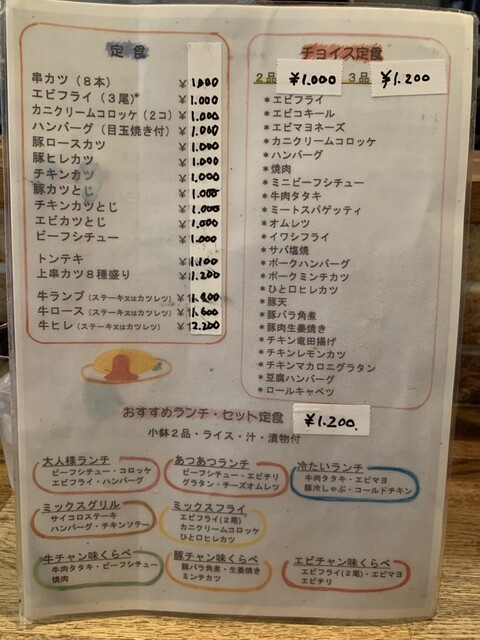 定食
串カツ（８本） ¥1.000
エビフライ（３尾） ¥1.000
カニクリームコロッケ（２コ） ¥1.000
ハンバーグ（目玉焼き付） ¥1.000
豚ロースカツ ¥1.000
豚ヒレカツ ¥1.000
チキンカツ ¥1.000
豚カツとじ ¥1.000
チキンカツとじ ¥1.000
エビカツとじ ¥1.000
ビーフシチュー ¥1.000
トンテキ ¥1.100
上串カツ８種盛り ¥1.200
牛ランプ（ステーキ又はカツレツ） ¥1.400
牛ロース（ステーキ又はカツレツ） ¥1.600
牛ヒレ（ステーキ又はカツレツ） ¥2.200
チョイス定食
２品 ¥1.000 ３品 ¥1.200
＊エビフライ
＊エビコキール
＊エビマヨネーズ
＊カニクリームコロッケ
＊ハンバーグ
＊焼肉
＊ミニビーフシチュー
＊牛肉タタキ
＊ミートスパゲッティ
＊オムレツ
＊イワシフライ
＊サバ塩焼
＊ポークハンバーグ
＊ポークミンチカツ
＊ひと口ヒレカツ
＊豚天
＊豚バラ角煮
＊豚肉生姜焼き
＊チキン竜田揚げ
＊チキンレモンカツ
＊チキンマカロニグラタン
＊豆腐ハンバーグ
＊ロールキャベツ
おすすめランチ・セット定食 ¥1.200.
小鉢２品・ライス・汁・漬物付
大人様ランチ
ビーフシチュー・コロッケ
エビフライ・ハンバーグ
あつあつランチ
ビーフシチュー・エビチリ
グラタン・チーズオムレツ
冷たいランチ
牛肉タタキ・エビマヨ
豚冷しゃぶ・コールドチキン
ミックスグリル
サイコロステーキ
ハンバーグ・チキンソテー
ミックスフライ
エビフライ（２尾）
カニクリームコロッケ
ひと口ヒレカツ
牛チャン味くらべ
牛肉タタキ・ビーフシチュー
焼肉
豚チャン味くらべ
豚バラ角煮・生姜焼き
ミンチカツ
エビチャン味くらべ
エビフライ（２尾）・エビマヨ
エビチリ